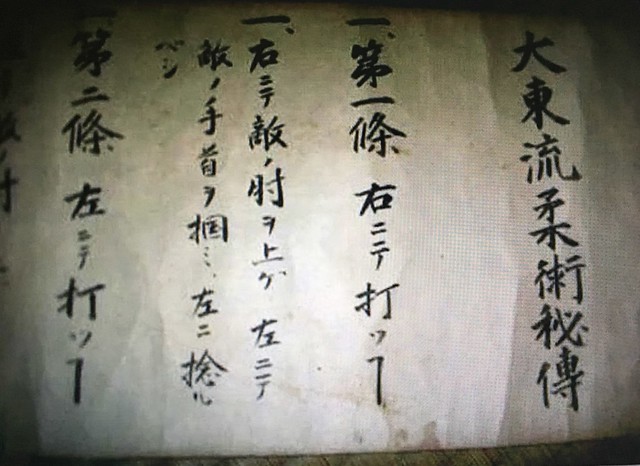 大東流柔術秘傳
一、第一條 右ニテ打ツヿ
一、右ニテ敵ノ肘ヲ上ゲ 左ニテ
敵ノ手首ヲ掴ミ、左ニ捻ル
ベシ
一、第二條 左ニテ打ツヿ